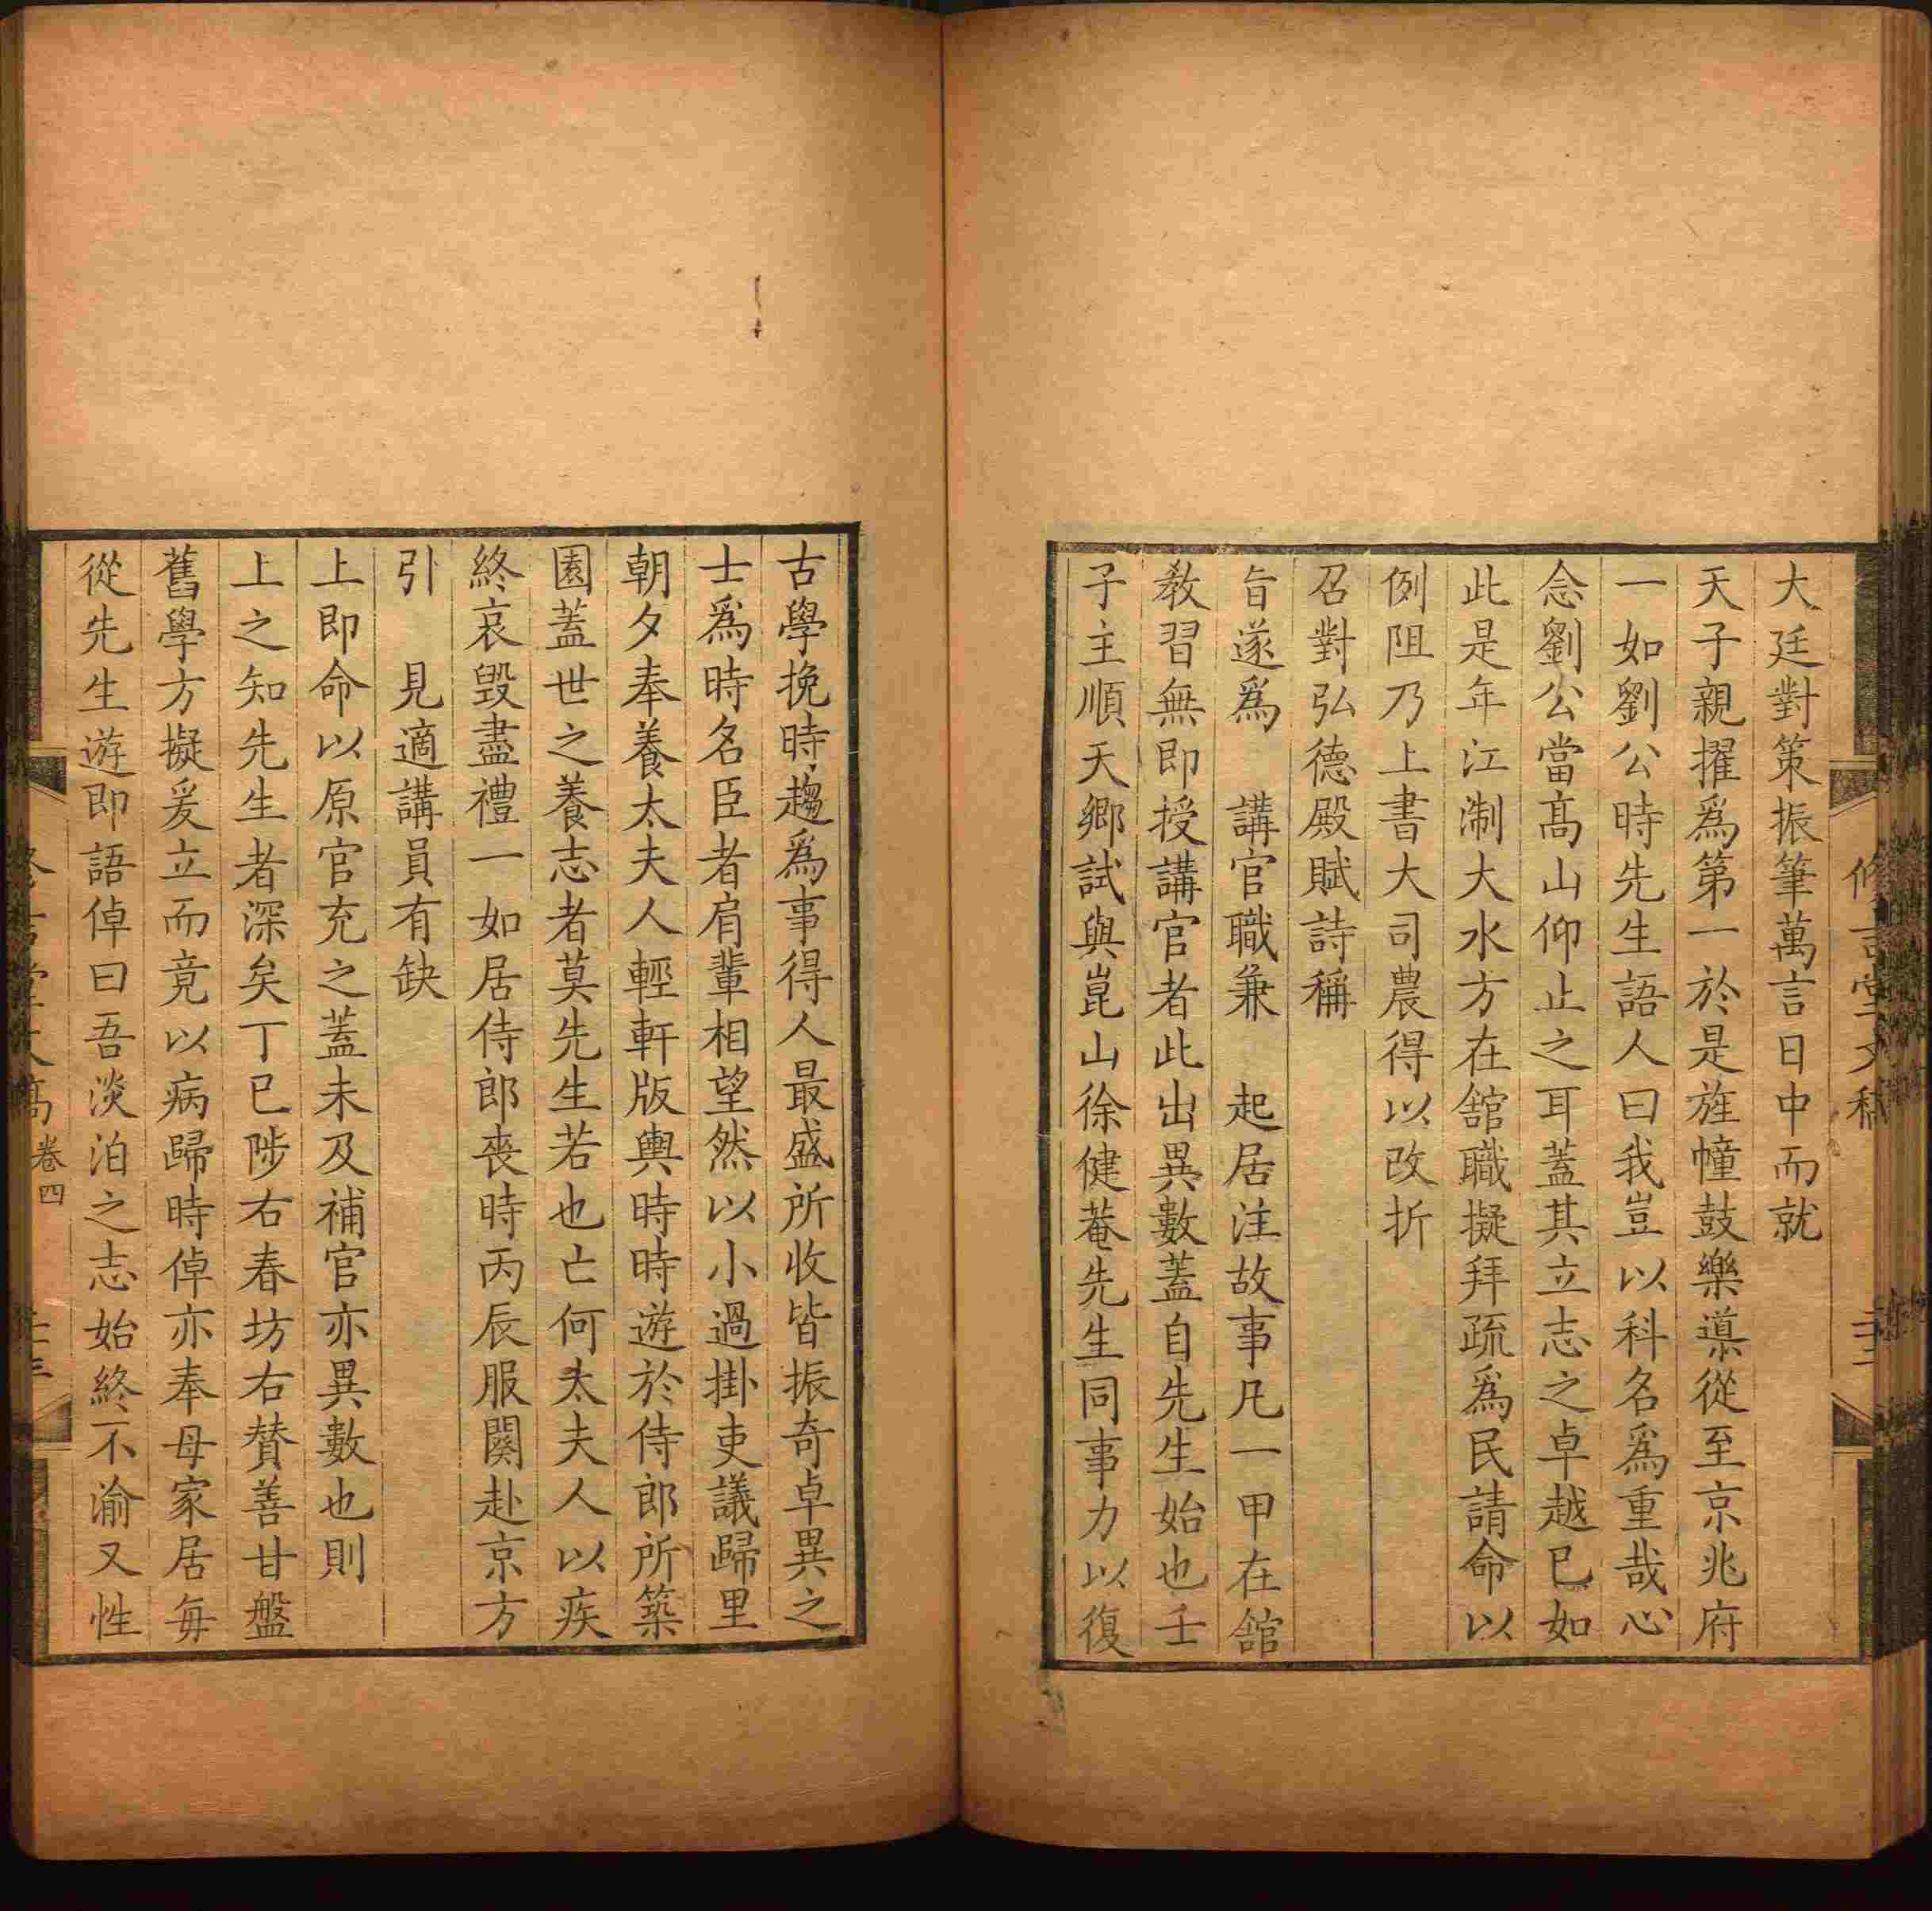 大廷對策振筆萬言日中而就
天子親擢爲第一於是旌幢鼓樂導從至京兆府
一如劉公時先生語人曰我豈以科名爲重哉心
念劉公當高山仰止之耳蓋其立志之卓越已如
此是年江浙大水方在舘職擬拜疏爲民請命以
例阻乃上書大司農得以改折
召對弘德殿賦詩稱
旨遂爲　講官職兼　起居注故事凡一甲在舘
教習無即授講官者此出異數蓋自先生始也壬
子主順天鄉試與崑山徐健菴先生同事力以復
古學挽時趨爲事得人最盛所收皆振奇卓異之
士爲時名臣者肩輩相望然以小過掛吏議歸里
朝夕奉養太夫人輕軒版輿時時遊於侍郎所築
園蓋世之養志者莫先生若也亡何太夫人以疾
終哀毀盡禮一如居侍郎喪時丙辰服闋赴京方
引　見適講員有缺
上即命以原官充之蓋未及補官亦異數也則
上之知先生者深矣丁巳陟右春坊右贊善甘盤
舊學方擬爰立而竟以病歸時倬亦奉母家居每
從先生遊即語倬曰吾淡泊之志始終不渝又性
卷四